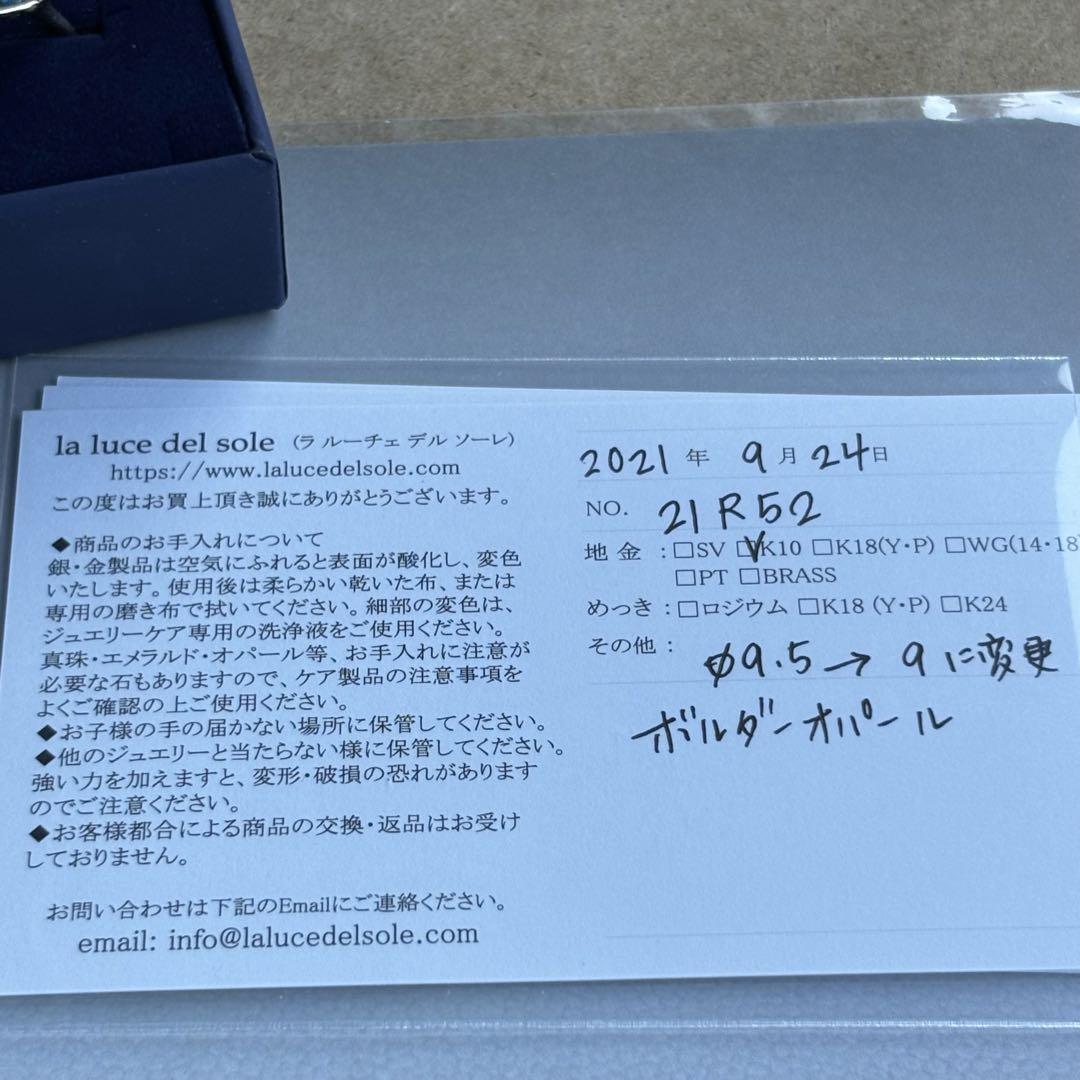 la luce del sole (ラ ルーチェ デル ソーレ)
https://www.lalucedelsole.com
この度はお買上頂き誠にありがとうございます。
◆商品のお手入れについて
銀・金製品は空気にふれると表面が酸化し、変色
いたします。使用後は柔らかい乾いた布、または
専用の磨き布で拭いてください。細部の変色は、
ジュエリーケア専用の洗浄液をご使用ください。
真珠・エメラルド・オパール等、お手入れに注意が
必要な石もありますので、ケア製品の注意事項を
よくご確認の上ご使用ください。
◆お子様の手の届かない場所に保管してください。
◆他のジュエリーと当たらない様に保管してください。
強い力を加えますと、変形・破損の恐れがあります
のでご注意ください。
◆お客様都合による商品の交換・返品はお受け
しておりません。
お問い合わせは下記のEmailにご連絡ください。
email: info@lalucedelsole.com
2021年 9月24日
NO. 21R52
地金:□SV ☑K10 □K18(Y・P) □WG(14・18)
□PT □BRASS
めっき:□ロジウム □K18 (Y・P) □K24
その他: φ9.5→9に変更
ボルダーオパール